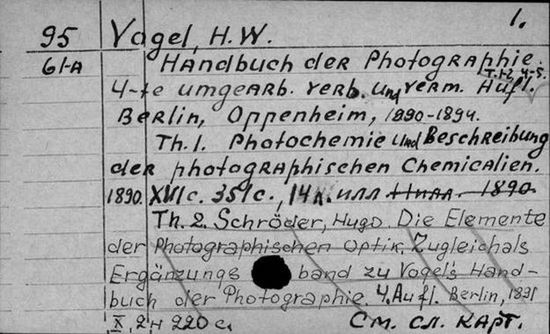 1.
95 Vogel, H.W.
61-A Handbuch der Photographie.
T.1-2, 4-5.
4-te umgearb. verb. und verm. Aufl.
Berlin, Oppenheim, 1890-1894.
Th. 1. Photochemie und Beschreibung
der photographischen Chemicalien.
1890. XVI с. 351 с., 14 л. илл 1890
Th. 2. Schröder, Hugo. Die Elemente
der Photographischen Optik, Zugleich als
Ergänzungs band zu Vogel's Hand-
buch der Photographie. 4. Aufl. Berlin, 1891
X, 2н 220 с. См. сл. карт.